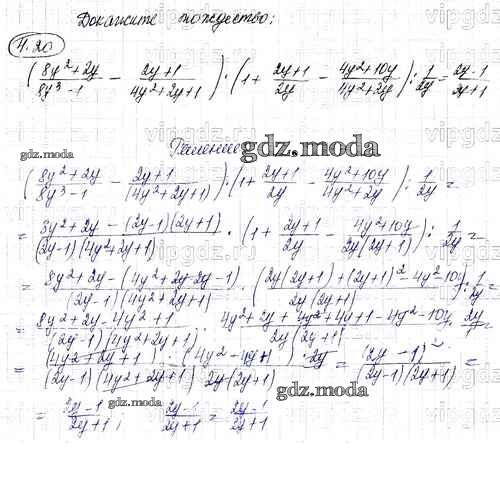 Докажите тождество:
4.20
(8y²+2y / 8y³-1 - 2y+1 / 4y²+2y+1) · (1 + 2y+1 / 2y - 4y²+10y / 4y²+2y) : 1 / 2y = 2y-1 / 2y+1
Решение
gdz.moda
(8y²+2y / 8y³-1 - 2y+1 / (4y²+2y+1)) · (1 + 2y+1 / 2y - 4y²+10y / 4y²+2y) : 1 / 2y =
= 3y²+2y - (2y-1)(2y+1) / (2y-1)(4y²+2y+1) · (1 + 2y+1 / 2y - 4y²+10y / 2y(2y+1)) : 1 / 2y =
= 8y²+2y-(4y²+2y-2y-1) / (2y-1)(4y²+2y+1) · (2y(2y+1)+(2y+1)²-4y²-10y / 2y(2y+1)) : 1 / 2y =
= 8y²+2y-4y²+1 / (2y-1)(4y²+2y+1) · 4y²+2y+4y²+4y+1-4y²-10y / 2y(2y+1) · 2y / 1 =
= (4y²+2y+1) / (2y-1)(4y²+2y+1) · (4y²-4y+1) / 2y(2y+1) · 2y = (2y-1)² / (2y-1)(2y+1) =
= 2y-1 / 2y+1; 2y-1 / 2y+1 = 2y-1 / 2y+1